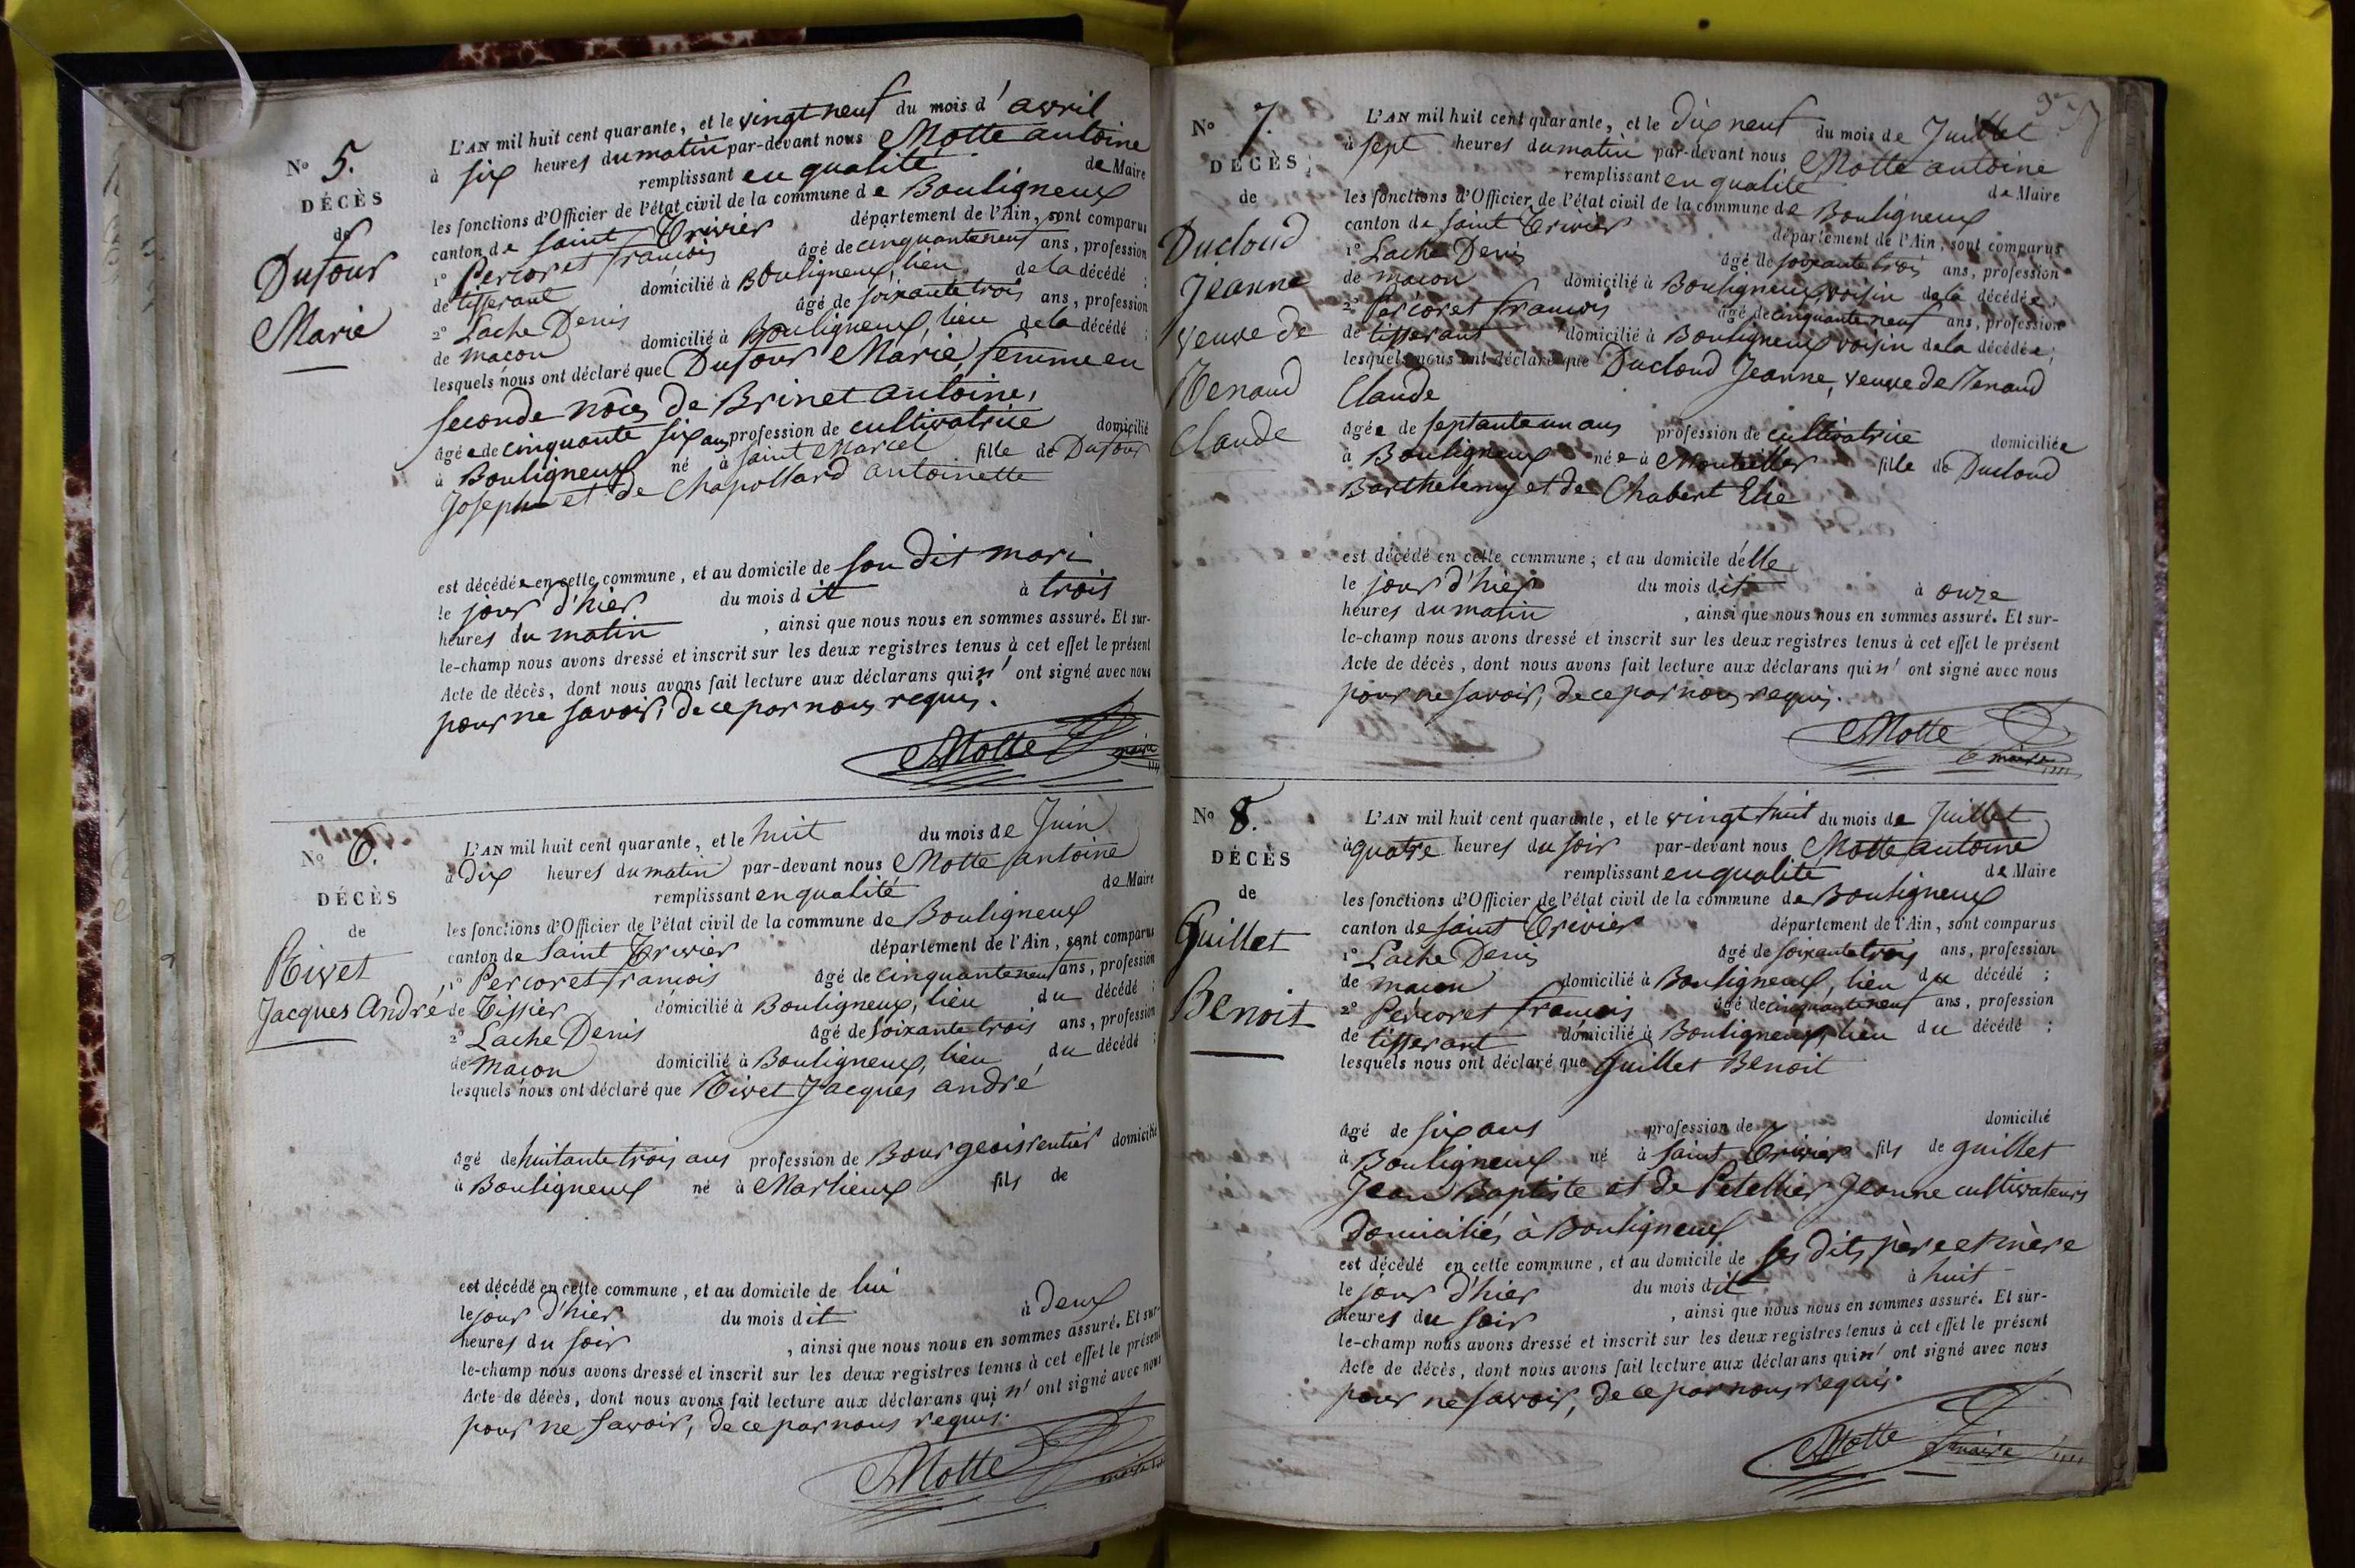 N° 5.
DÉCÈS
de
Dufour
Marie
L'AN mil huit cent quarante, et le vingt neuf du mois d'avril
à six heures du matin par-devant nous Motte antoine
remplissant en qualité de Maire
les fonctions d'Officier de l'état civil de la commune de Bouligneux
canton de Saint Trivier département de l'Ain, sont comparus
1° Percoret francois âgé de cinquante neuf ans, profession
de tisserant domicilié à Bouligneux, lieu de la décédé ;
2° Lache Denis âgé de soixante trois ans, profession
de macon domicilié à Bouligneux, lieu de la décédé ;
lesquels nous ont déclaré que Dufour Marie, femme en
seconde nôces de Brinet antoine,
âgée de cinquante six ans profession de cultivatrice domicilié
à Bouligneux né à Saint Marcel fille de Dufour
Joseph et de Chapollard antoinette
est décédée en cette commune, et au domicile de son dit mari
le jour d'hier du mois dit à trois
heures du matin , ainsi que nous nous en sommes assuré. Et sur-
le-champ nous avons dressé et inscrit sur les deux registres tenus à cet effet le présent
Acte de décès, dont nous avons fait lecture aux déclarans qui n'ont signé avec nous
pour ne savoir, de ce par nous requis.
Motte maire
N° 6.
DÉCÈS
de
Rivet
Jacques André
L'AN mil huit cent quarante, et le huit du mois de Juin
à dix heures du matin par-devant nous Motte antoine
remplissant en qualité de Maire
les fonctions d'Officier de l'état civil de la commune de Bouligneux
canton de Saint Trivier département de l'Ain, sont comparus
1° Percoret francois âgé de cinquante neuf ans, profession
de Tissier domicilié à Bouligneux, lieu du décédé ;
2° Lache Denis âgé de soixante trois ans, profession
de macon domicilié à Bouligneux, lieu du décédé ;
lesquels nous ont déclaré que Rivet Jacques andré
âgé de huitante trois ans profession de Bourgeois rentier domicilié
à Bouligneux né à Marlieux fils de
est décédé en cette commune, et au domicile de lui
le jour d'hier du mois dit à deux
heures du soir , ainsi que nous nous en sommes assuré. Et sur-
le-champ nous avons dressé et inscrit sur les deux registres tenus à cet effet le présent
Acte de décès, dont nous avons fait lecture aux déclarans qui n'ont signé avec nous
pour ne savoir, de ce par nous requis.
Motte maire
N° 7.
DÉCÈS
de
Ducloud
Jeanne
veuve de
Renaud
Claude
L'AN mil huit cent quarante, et le dix neuf du mois de Juillet
à sept heures du matin par-devant nous Motte antoine
remplissant en qualité de Maire
les fonctions d'Officier de l'état civil de la commune de Bouligneux
canton de Saint Trivier département de l'Ain, sont comparus
1° Lache Denis âgé de soixante trois ans, profession
de macon domicilié à Bouligneux, voisin de la décédée ;
2° Percoret francois âgé de cinquante neuf ans, profession
de tisserant domicilié à Bouligneux voisin de la décédée ;
lesquels nous ont déclaré que Ducloud Jeanne, veuve de Renaud
Claude
âgée de septante un ans profession de cultivatrice domiciliée
à Bouligneux née à Monthellier fille de Ducloud
Barthelemy et de Chabert Elie
est décédé en cette commune, et au domicile d'elle
le jour d'hier du mois dit à onze
heures du matin , ainsi que nous nous en sommes assuré. Et sur-
le-champ nous avons dressé et inscrit sur les deux registres tenus à cet effet le présent
Acte de décès, dont nous avons fait lecture aux déclarans qui n'ont signé avec nous
pour ne savoir, de ce par nous requis.
Motte maire
N° 8.
DÉCÈS
de
Guillet
Benoit
L'AN mil huit cent quarante, et le vingt huit du mois de Juillet
à quatre heures du soir par-devant nous Motte antoine
remplissant en qualité de Maire
les fonctions d'Officier de l'état civil de la commune de Bouligneux
canton de Saint Trivier département de l'Ain, sont comparus
1° Lache Denis âgé de soixante trois ans, profession
de macon domicilié à Bouligneux, lieu du décédé ;
2° Percoret francois âgé de cinquante neuf ans, profession
de tisserant domicilié à Bouligneux, lieu du décédé ;
lesquels nous ont déclaré que Guillet Benoit
âgé de six ans profession de domicilié
à Bouligneux né à Saint Trivier fils de guillet
Jean Baptiste et de Peletier Jeanne cultivateurs
domiciliés à Bouligneux
est décédé en cette commune, et au domicile de ses dits père et mère
le jour d'hier du mois dit à huit
heures du soir , ainsi que nous nous en sommes assuré. Et sur-
le-champ nous avons dressé et inscrit sur les deux registres tenus à cet effet le présent
Acte de décès, dont nous avons fait lecture aux déclarans qui n'ont signé avec nous
pour ne savoir, de ce par nous requis.
Motte maire